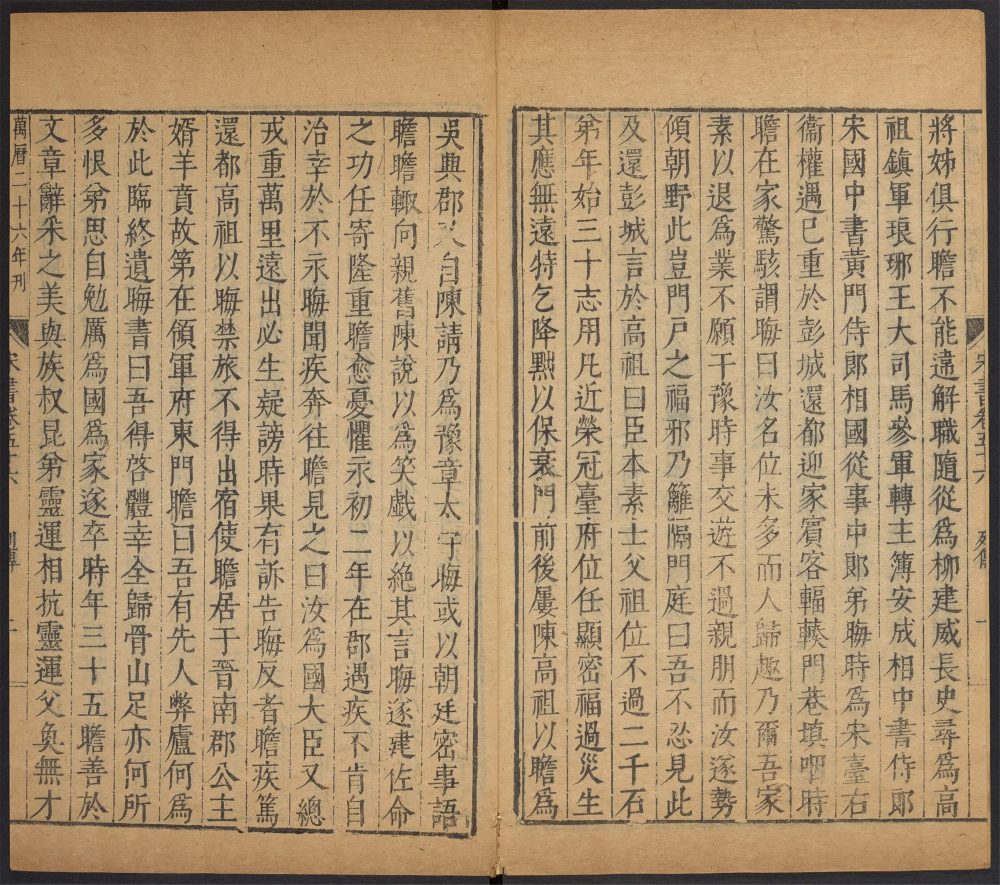 將姊俱行瞻不能違解職隨從爲柳建威長史尋爲高
祖鎮軍琅琊王大司馬參軍轉主簿安成相中書侍郎
宋國中書黃門侍郎相國從事中郎弟晦時爲宋臺右
衞權遇已重於彭城還都迎家賓客輻輳門巷填咽時
瞻在家驚駭謂晦曰汝名位未多而人歸趣乃爾吾家
素以退爲業不願干豫時事交遊不過親朋而汝遂勢
傾朝野此豈門戶之福邪乃籬隔門庭曰吾不忍見此
及還彭城言於高祖曰臣本素士父祖位不過二千石
弟年始三十志用凡近榮冠臺府位任顯密福過災生
其應無遠特乞降黜以保衰門前後屢陳高祖以瞻爲
宋書卷五十六 列傳
吳興郡又自陳請乃爲豫章太守晦或以朝廷密事語
瞻瞻輙向親舊陳說以爲笑戲以絕其言晦遂建佐命
之功任寄隆重瞻愈憂懼永初二年在郡遇疾不肯自
治幸於不永晦聞疾奔往瞻見之曰汝爲國大臣又總
戎重萬里遠出必生疑謗時果有訴告晦反者瞻疾篤
還都高祖以晦禁旅不得出宿使瞻居于晉南郡公主
婿羊賁故第在領軍府東門瞻曰吾有先人弊廬何爲
於此臨終遺晦書曰吾得啓體幸全歸骨山足亦何所
多恨弟思自勉厲爲國爲家遂卒時年三十五瞻善於
文章辭采之美與族叔昆弟靈運相抗靈運父奐無才
萬曆二十六年刊 宋書卷五十六 列傳